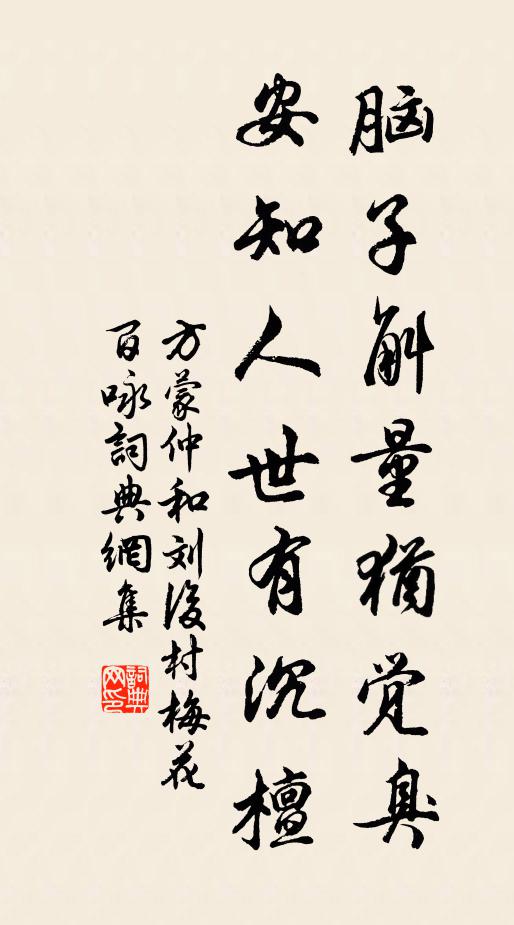 脑子斛量猶觉臭
安知人世有沉檀
方蒙仲和刘後村梅花
百咏詞典網集
詞典网印